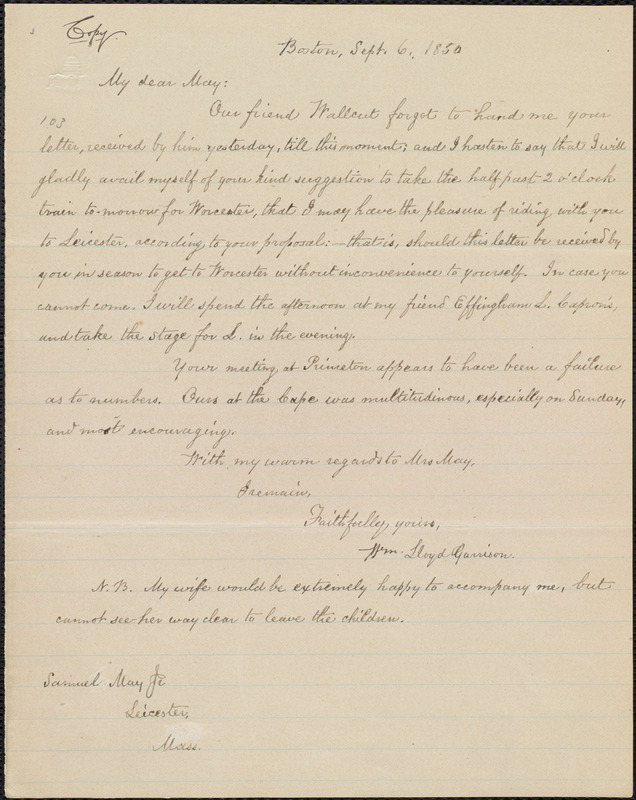 Copy.
Boston, Sept. 6, 1850
My dear May:
Our friend Wallcut forgot to hand me your
103
letter, received by him yesterday, till this moment; and I hasten to say that I will
gladly avail myself of your kind suggestion to take the half past 2 o'clock
train to-morrow for Worcester, that I may have the pleasure of riding with you
to Leicester, according to your proposal:—that is, should this letter be received by
you in season to get to Worcester without inconvenience to yourself. In case you
cannot come, I will spend the afternoon at my friend Effingham L. Capron's,
and take the stage for L. in the evening.
Your meeting at Princeton appears to have been a failure
as to numbers. Ours at the Cape was multitudinous, especially on Sunday,
and most encouraging.
With my warm regards to Mrs May,
I remain,
Faithfully yours,
Wm. Lloyd Garrison.
N.B. My wife would be extremely happy to accompany me, but
cannot see her way clear to leave the children.
Samuel May Jr
Leicester,
Mass.